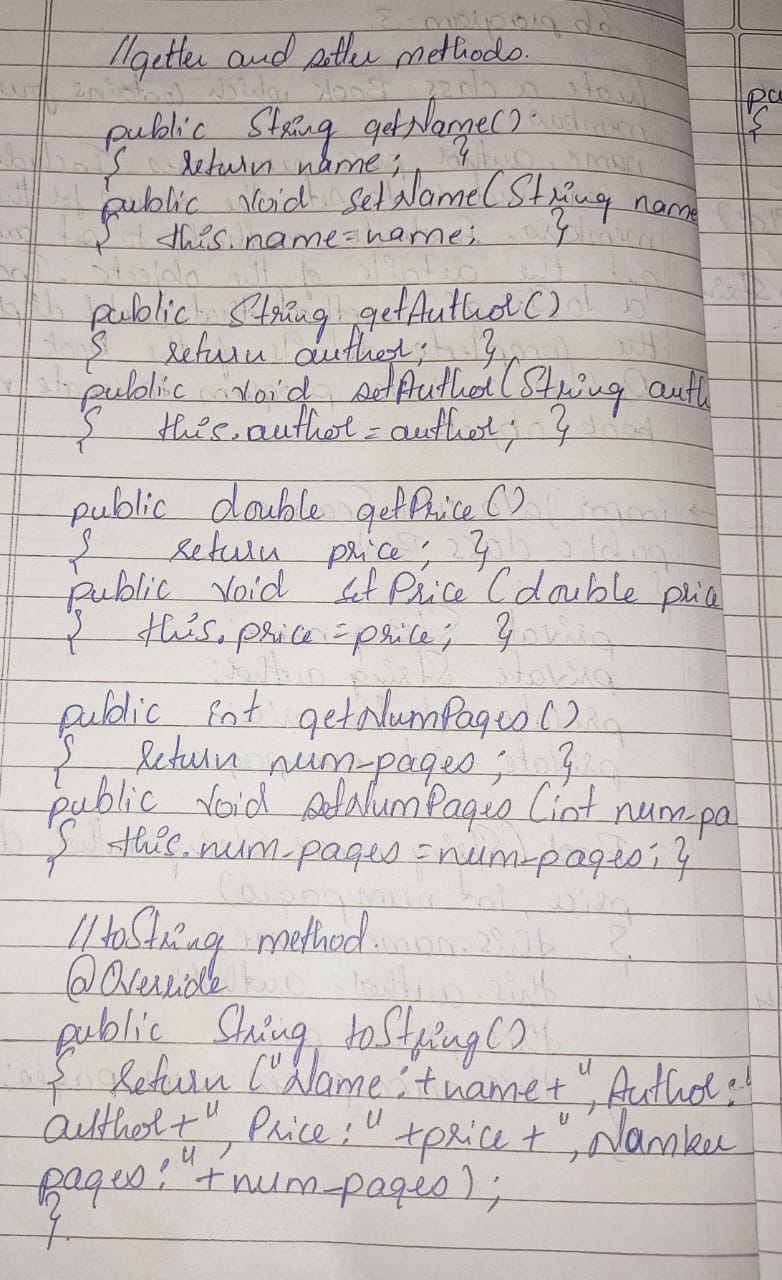 //getter and setter methods.
public String getName()
{ return name; }
public void setName(String name
{ this.name=name; }
public String getAuthor()
{ return author; }
public void setAuthor(String auth
{ this.author = author; }
public double getPrice()
{ return price; }
public void setPrice (double price
{ this.price = price; }
public int getNumPages()
{ return num-pages; }
public void setNumPages (int num-pa
{ this.num-pages = num-pages; }
//toString method.
@Override
public String toString()
{ return ("Name:"+name+", Author:"
author+", Price:" +price+",
pages:"+num-pages);
}
pu
{